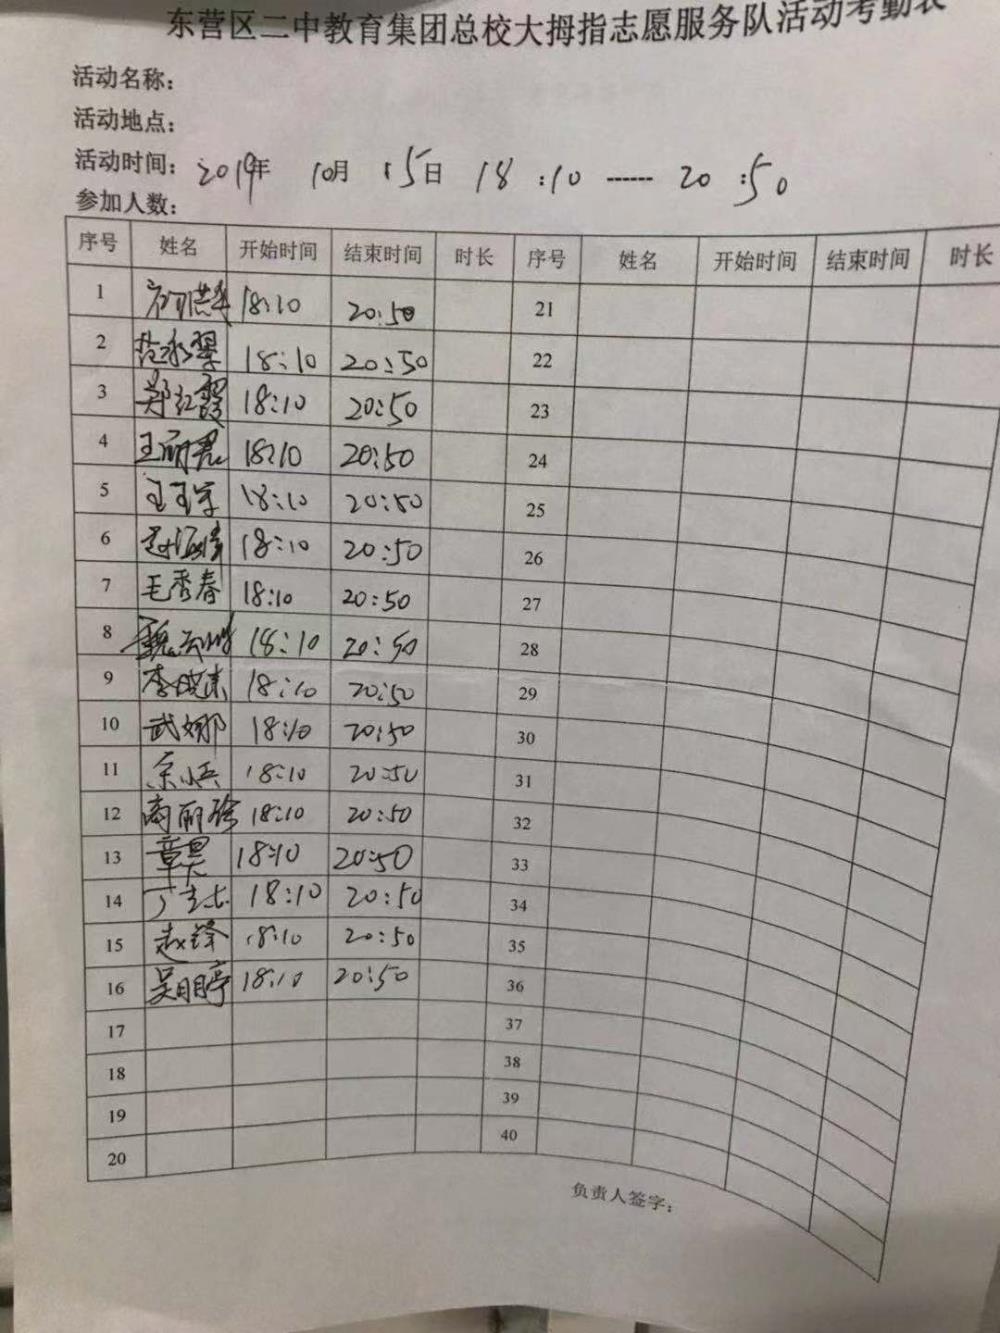 东营区二中教育集团总校大拇指志愿服务队活动考勤表
活动名称：
活动地点：
活动时间：2019年 10月 15日 18:10 ------ 20:50
参加人数：
序号 姓名 开始时间 结束时间 时长 序号 姓名 开始时间 结束时间 时长
1 18:10 20:50 21
2 18:10 20:50 22
3 郑红霞 18:10 20:50 23
4 王丽君 18:10 20:50 24
5 18:10 20:50 25
6 18:10 20:50 26
7 毛秀春 18:10 20:50 27
8 18:10 20:50 28
9 李晓东 18:10 20:50 29
10 武娜 18:10 20:50 30
11 18:10 20:50 31
12 18:10 20:50 32
13 18:10 20:50 33
14 18:10 20:50 34
15 赵锋 18:10 20:50 35
16 18:10 20:50 36
17 37
18 38
19 39
20 40
负责人签字：